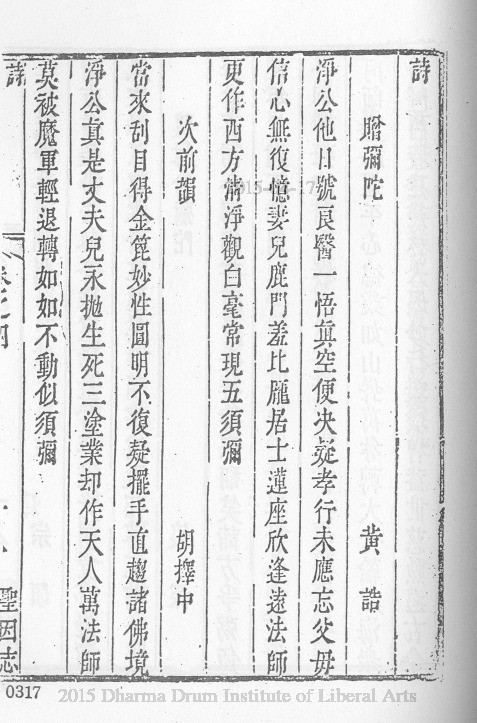 詩
贈彌陀　黃誥
淨公他日號良醫一悟真空便决疑孝行未應忘父母
信心無復憶妻兒鹿門羞比龐居士蓮座欣逢遠法師
更作西方清淨觀白毫常現五須彌
次前韻　胡擇中
當來刮目得金篦妙性圓明不復疑擺手直趨諸佛境
淨公真是丈夫兒永拋生死三塗業却作天人萬法師
莫被魔軍輕退轉如如不動似須彌
詩
聖因志
0317
2015 Dharma Drum Institute of Liberal Arts